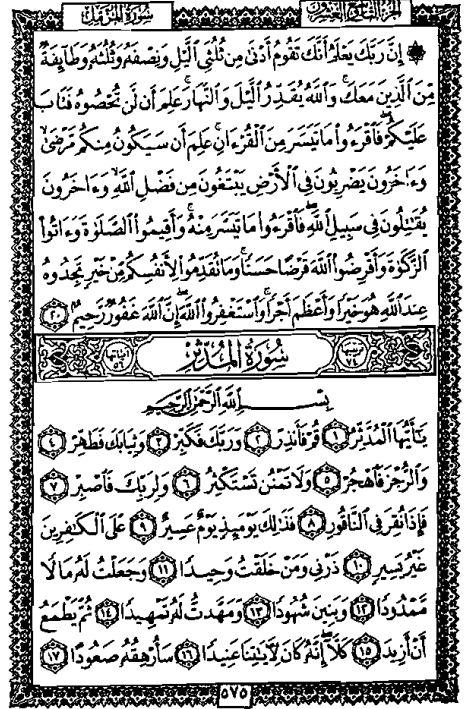 الجزء التاسع والعشرون
سورة المزمل
۞ إِنَّ رَبَّكَ يَعْلَمُ أَنَّكَ تَقُومُ أَدْنَىٰ مِن ثُلُثَىِ ٱلَّيْلِ وَنِصْفَهُۥ وَثُلُثَهُۥ وَطَآئِفَةٌ
مِّنَ ٱلَّذِينَ مَعَكَ ۚ وَٱللَّهُ يُقَدِّرُ ٱلَّيْلَ وَٱلنَّهَارَ ۚ عَلِمَ أَن لَّن تُحْصُوهُ فَتَابَ
عَلَيْكُمْ ۖ فَٱقْرَءُوا۟ مَا تَيَسَّرَ مِنَ ٱلْقُرْءَانِ ۚ عَلِمَ أَن سَيَكُونُ مِنكُم مَّرْضَىٰ ۙ
وَءَاخَرُونَ يَضْرِبُونَ فِى ٱلْأَرْضِ يَبْتَغُونَ مِن فَضْلِ ٱللَّهِ ۙ وَءَاخَرُونَ
يُقَٰتِلُونَ فِى سَبِيلِ ٱللَّهِ ۖ فَٱقْرَءُوا۟ مَا تَيَسَّرَ مِنْهُ ۚ وَأَقِيمُوا۟ ٱلصَّلَوٰةَ وَءَاتُوا۟
ٱلزَّكَوٰةَ وَأَقْرِضُوا۟ ٱللَّهَ قَرْضًا حَسَنًا ۚ وَمَا تُقَدِّمُوا۟ لِأَنفُسِكُم مِّنْ خَيْرٍ تَجِدُوهُ
عِندَ ٱللَّهِ هُوَ خَيْرًا وَأَعْظَمَ أَجْرًا ۚ وَٱسْتَغْفِرُوا۟ ٱللَّهَ ۖ إِنَّ ٱللَّهَ غَفُورٌ رَّحِيمٌۢ ٢٠
ترتيبها ٧٤ سُورَةُ المُدَّثِّر آياتها ٥٦
بِسْمِ ٱللَّهِ ٱلرَّحْمَٰنِ ٱلرَّحِيمِ
يَٰٓأَيُّهَا ٱلْمُدَّثِّرُ ١ قُمْ فَأَنذِرْ ٢ وَرَبَّكَ فَكَبِّرْ ٣ وَثِيَابَكَ فَطَهِّرْ ٤
وَٱلرُّجْزَ فَٱهْجُرْ ٥ وَلَا تَمْنُن تَسْتَكْثِرُ ٦ وَلِرَبِّكَ فَٱصْبِرْ ٧
فَإِذَا نُقِرَ فِى ٱلنَّاقُورِ ٨ فَذَٰلِكَ يَوْمَئِذٍ يَوْمٌ عَسِيرٌ ٩ عَلَى ٱلْكَٰفِرِينَ
غَيْرُ يَسِيرٍ ١٠ ذَرْنِى وَمَنْ خَلَقْتُ وَحِيدًا ١١ وَجَعَلْتُ لَهُۥ مَالًا
مَّمْدُودًا ١٢ وَبَنِينَ شُهُودًا ١٣ وَمَهَّدتُّ لَهُۥ تَمْهِيدًا ١٤ ثُمَّ يَطْمَعُ
أَنْ أَزِيدَ ١٥ كَلَّآ ۖ إِنَّهُۥ كَانَ لِءَايَٰتِنَا عَنِيدًا ١٦ سَأُرْهِقُهُۥ صَعُودًا ١٧
٥٧٥